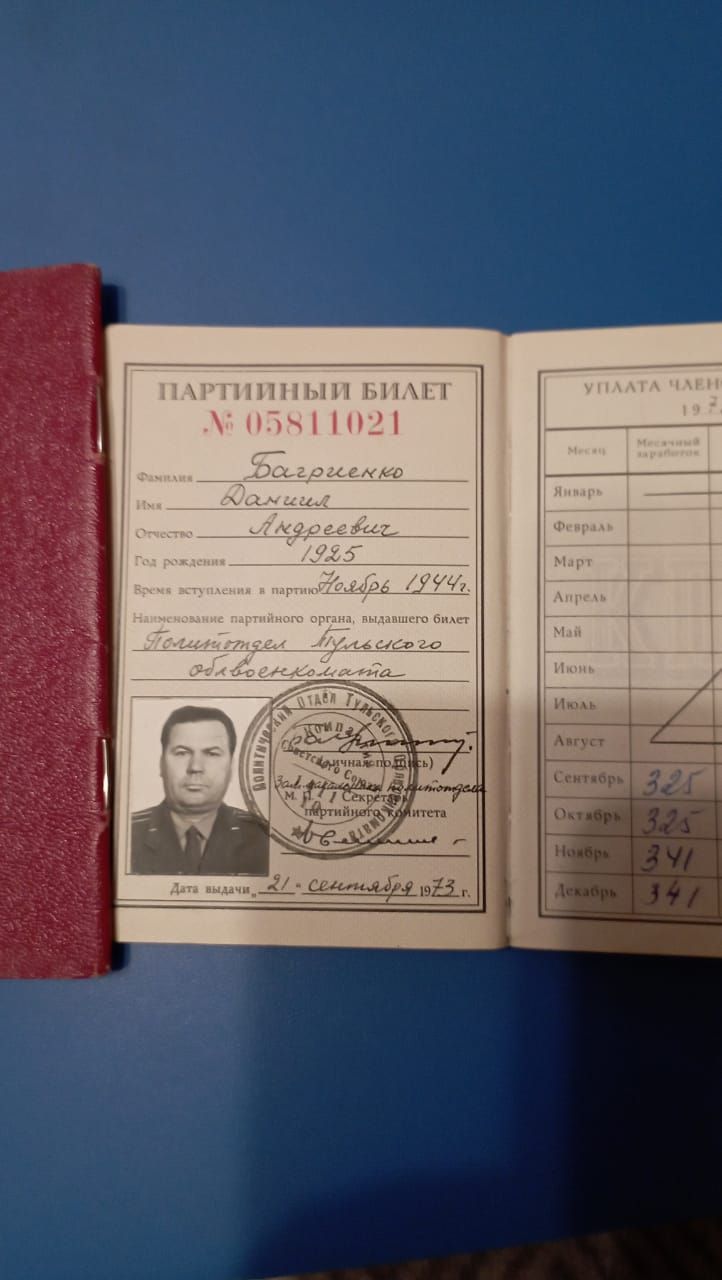 ПАРТИЙНЫЙ БИЛЕТ
№ 05811021
Фамилия Багриенко
Имя Даниил
Отчество Андреевич
Год рождения 1925
Время вступления в партию Ноябрь 1944г.
Наименование партийного органа, выдавшего билет
Политотдел Тульского
облвоенкомата
Политический Отдел Тульского Облвоенкомата
Советского Союза
(личная подпись)
Зам. начальника политотдела
М. П. Секретарь
партийного комитета
Дата выдачи „21" сентября 1973 г.
УПЛАТА ЧЛЕН
19
Месяц Месячный заработок
Январь
Февраль
Март
Апрель
Май
Июнь
Июль
Август
Сентябрь 325
Октябрь 325
Ноябрь 341
Декабрь 341